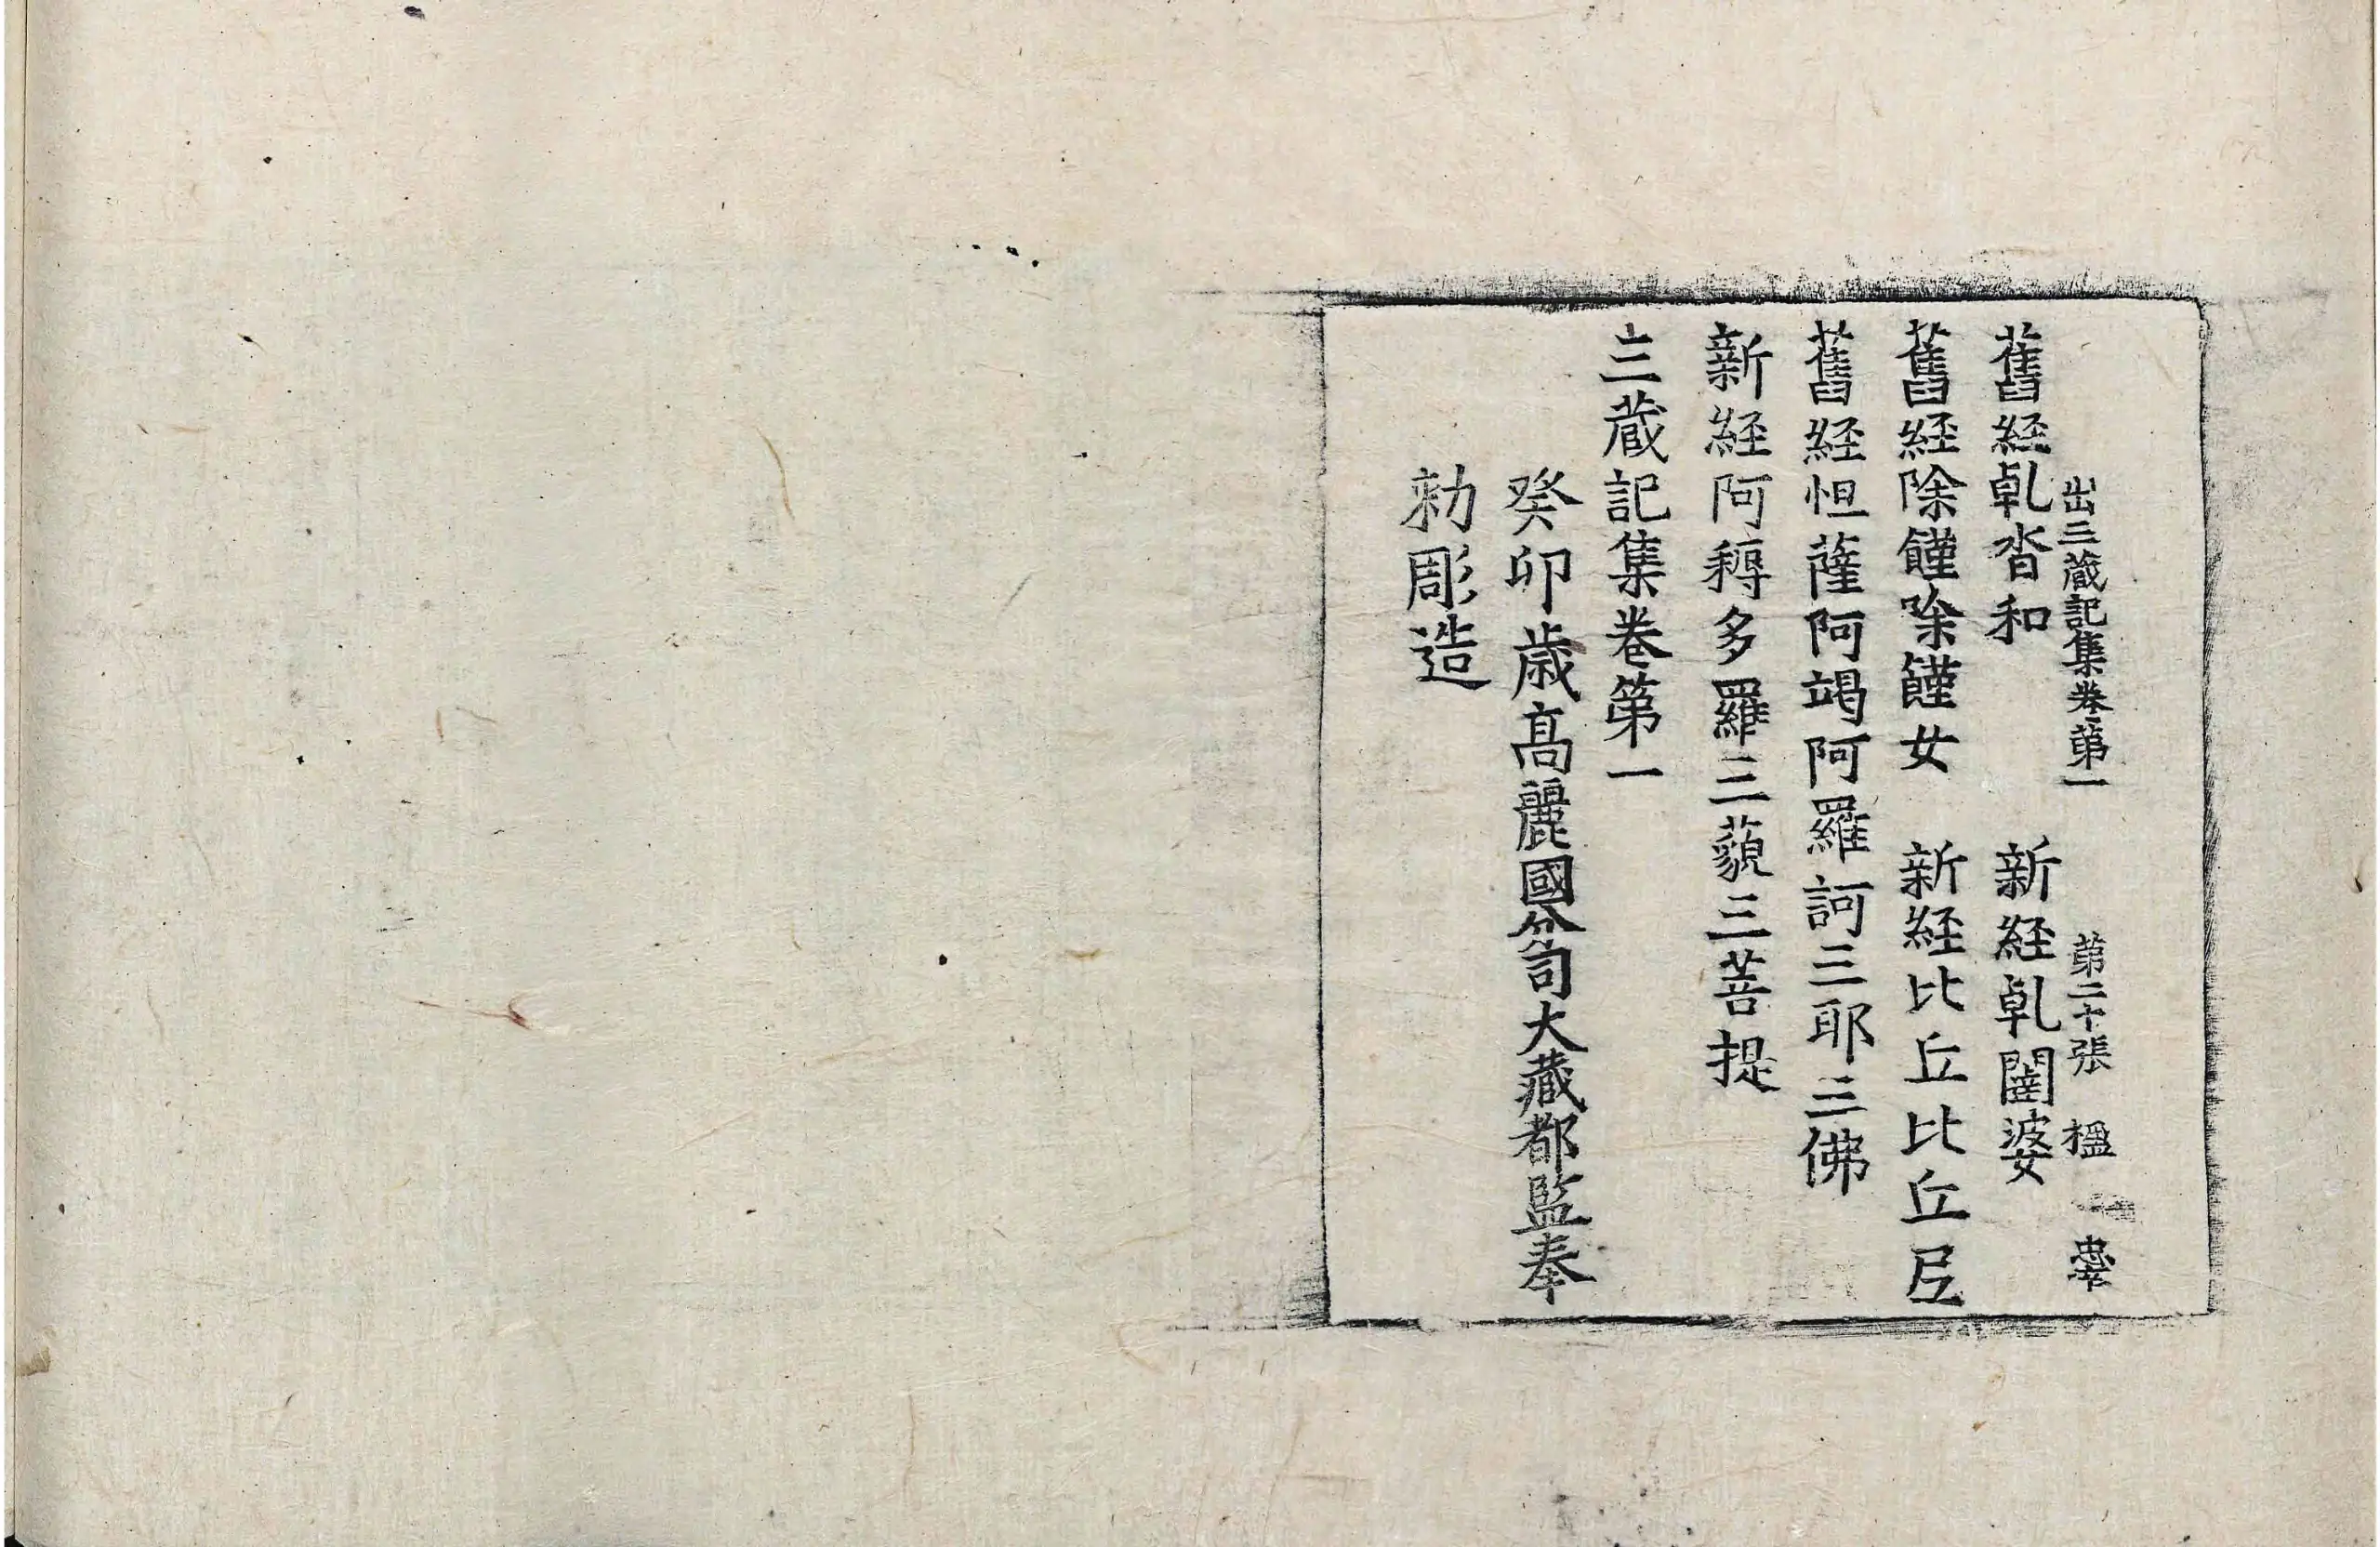 出三蔵記集卷第一 第二十張 楹
舊經乹沓和 新經乹闥婆
舊經除饉除饉女 新經比丘比丘尼
舊經怛薩阿竭阿羅訶三耶三佛
新經阿耨多羅三藐三菩提
三蔵記集卷第一
癸卯歳髙麗國分司大藏都監奉
勑彫造